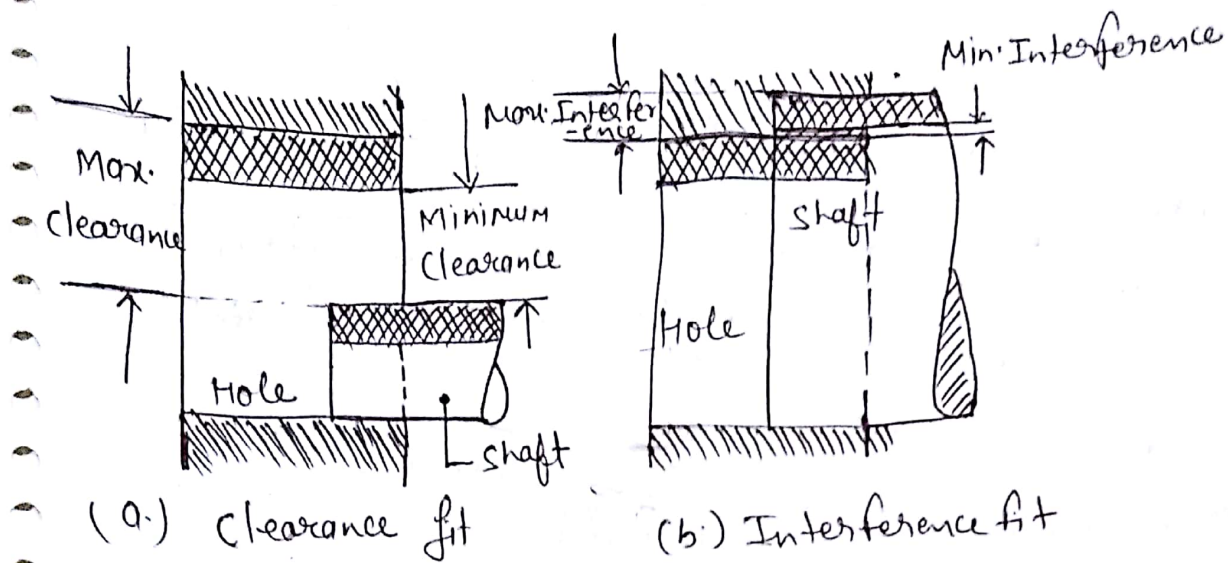 Max.
Clearance
Minimum
Clearance
Hole
Shaft
(a.) Clearance fit
Max. Interfer
-ence
Min. Interference
Shaft
Hole
(b.) Interference fit